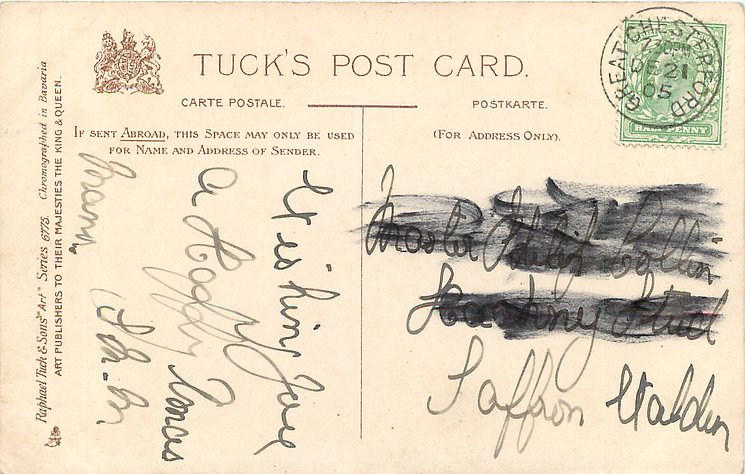 TUCK'S POST CARD.
CARTE POSTALE.
POSTKARTE.
IF SENT ABROAD, THIS SPACE MAY ONLY BE USED
FOR NAME AND ADDRESS OF SENDER.
(FOR ADDRESS ONLY).
Raphael Tuck & Sons' "Art" Series 6775. Chromographed in Bavaria
ART PUBLISHERS TO THEIR MAJESTIES THE KING & QUEEN.
GREAT CHESTERFORD
7 30PM
DE 21
05
HALFPENNY
Wishing You
a Happy Xmas
Master Philip
Stud
Saffron Walden